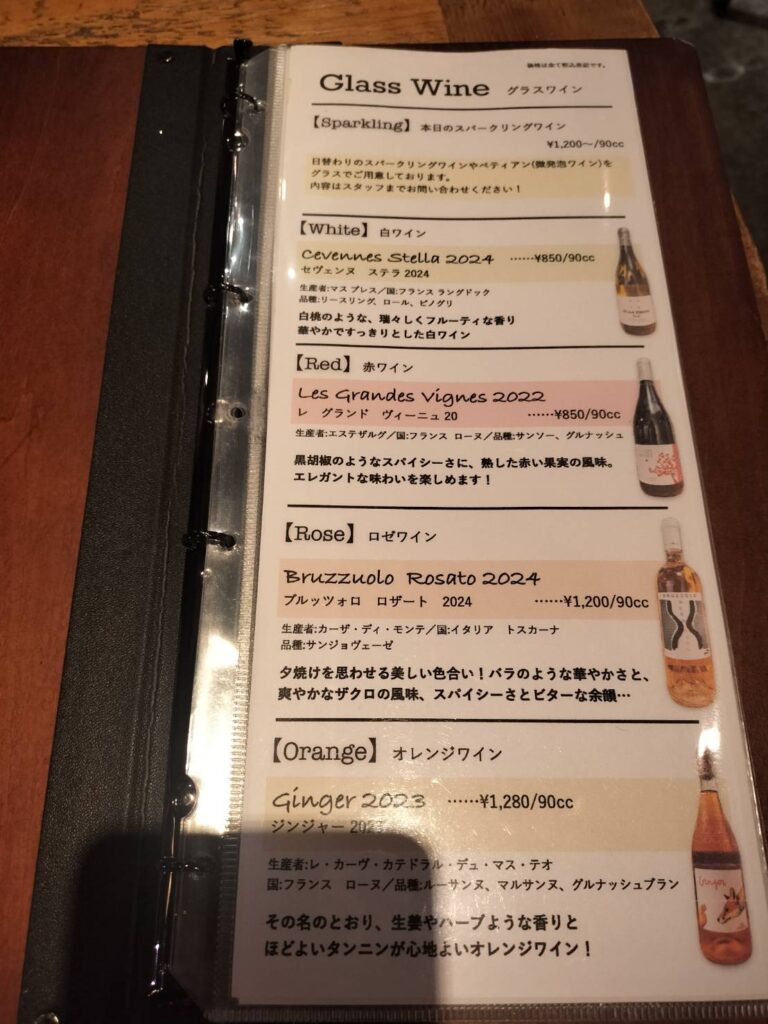 価格は全て税込表記です。
Glass Wine グラスワイン
【Sparkling】本日のスパークリングワイン
¥1,200〜/90cc
日替わりのスパークリングワインやペティアン(微発泡ワイン)を
グラスでご用意しております。
内容はスタッフまでお問い合わせください！
【White】白ワイン
Cevennes Stella 2024 ……¥850/90cc
セヴェンヌ ステラ 2024
生産者:マス ブレス／国:フランス ラングドック
品種:リースリング、ロール、ピノグリ
白桃のような、瑞々しくフルーティな香り
華やかですっきりとした白ワイン
【Red】赤ワイン
Les Grandes Vignes 2022
レ グランド ヴィーニュ 20 ……¥850/90cc
生産者:エステザルグ／国:フランス ローヌ／品種:サンソー、グルナッシュ
黒胡椒のようなスパイシーさに、熟した赤い果実の風味。
エレガントな味わいを楽しめます！
【Rose】ロゼワイン
Bruzzuolo Rosato 2024
ブルッツォロ ロザート 2024 ……¥1,200/90cc
生産者:カーザ・ディ・モンテ／国:イタリア トスカーナ
品種:サンジョヴェーゼ
夕焼けを思わせる美しい色合い！バラのような華やかさと、
爽やかなザクロの風味、スパイシーさとビターな余韻…
【Orange】オレンジワイン
Ginger 2023 ……¥1,280/90cc
ジンジャー 202
生産者:レ・カーヴ・カテドラル・デュ・マス・テオ
国:フランス ローヌ／品種:ルーサンヌ、マルサンヌ、グルナッシュブラン
その名のとおり、生姜やハーブような香りと
ほどよいタンニンが心地よいオレンジワイン！
Ginger